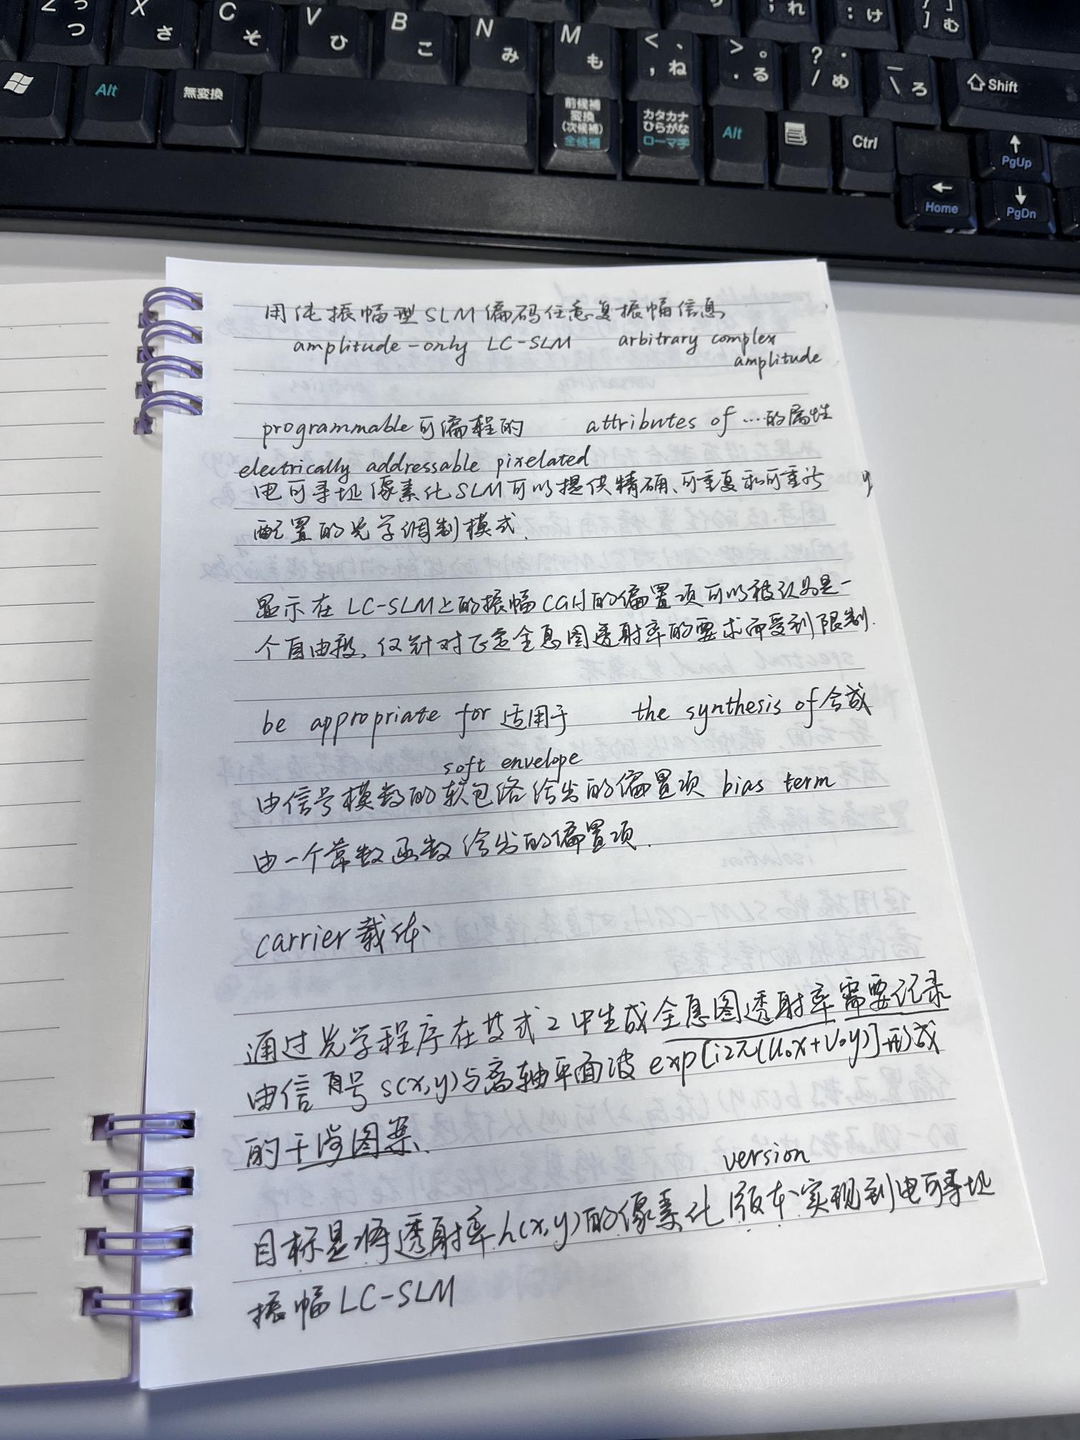 Z っ
X さ
C そ
V ひ
B こ
N み
M も
< 、 , ね
> 。 . る
? ・ / め
_ \ ろ
⇧ Shift
Alt
無変換
前候補
変換
(次候補)
全候補
カタカナ
ひらがな
ローマ字
Alt
Ctrl
↑ PgUp
← Home
↓ PgDn
用纯振幅型SLM编码任意复振幅信息
amplitude-only LC-SLM arbitrary complex
amplitude
programmable 可编程的 attributes of …的属性
electrically addressable pixelated
电可寻址像素化SLM可以提供精确、可重复和可重新
配置的光学调制模式.
显示在LC-SLM上的振幅CGH的偏置项可以被认为是一
个自由段,仅针对正定全息图透射率的要求而受到限制.
be appropriate for 适用于 the synthesis of 合成
soft envelope
由信号模数的软包络给出的偏置项 bias term
由一个常数函数给出的偏置项.
carrier 载体
通过光学程序在公式2中生成全息图透射率需要记录
由信号s(x,y)与离轴平面波exp[i2π(u₀x+v₀y)]形成
的干涉图案.
version
目标是将透射率h(x,y)的像素化版本实现到电可寻址
振幅LC-SLM